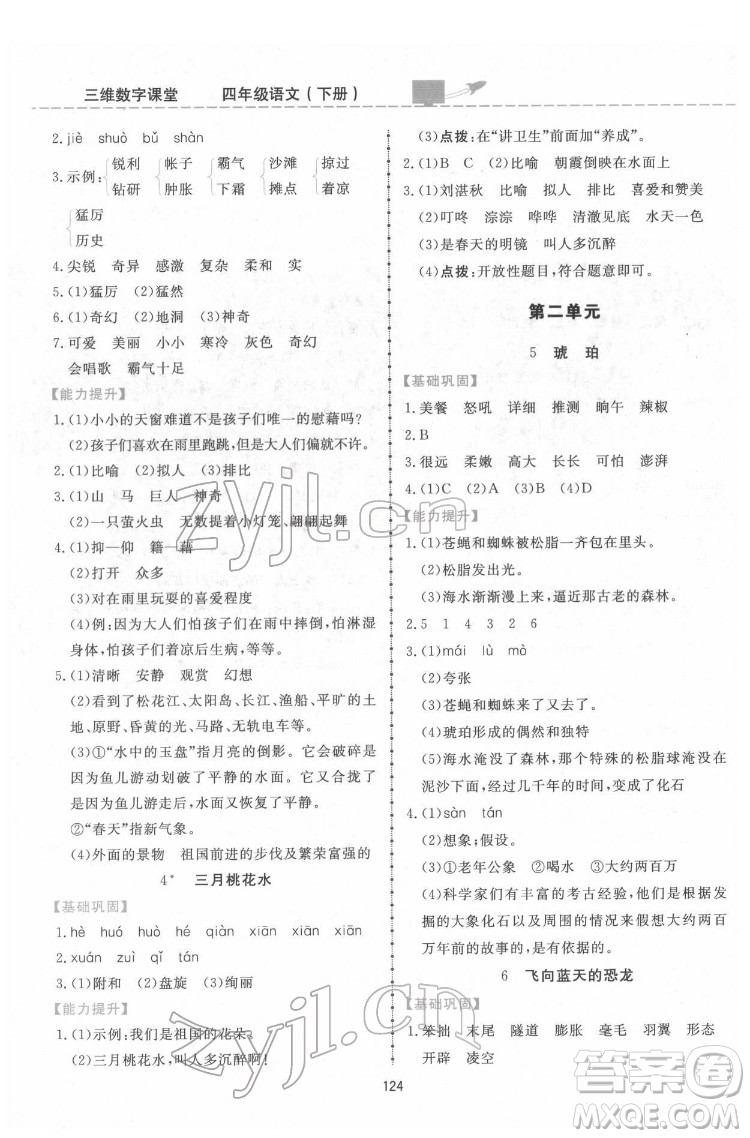 三维数字课堂 四年级语文(下册)
2.jiè shuò bǔ shàn
3.示例:{锐利 钻研 {帐子 肿胀 {霸气 下霜 {沙滩 摊点 {掠过 着凉
{猛厉 历史
4.尖锐 奇异 感激 复杂 柔和 实在
5.(1)猛厉 (2)猛然
6.(1)奇幻 (2)地洞 (3)神奇
7.可爱 美丽 小小 寒冷 灰色 奇幻
会唱歌 霸气十足
【能力提升】
1.(1)小小的天窗难道不是孩子们唯一的慰藉吗?
(2)孩子们喜欢在雨里跑跳,但是大人们偏就不许。
2.(1)比喻 (2)拟人 (3)排比
3.(1)山 马 巨人 神奇
(2)一只萤火虫 无数提着小灯笼、翩翩起舞
4.(1)抑—仰 籍—藉
(2)打开 众多
(3)对在雨里玩耍的喜爱程度
(4)例:因为大人们怕孩子在雨中摔倒、怕淋湿
身体、怕孩子着凉生病,等等。
5.(1)清晰 安静 观赏 幻想
(2)看到了松花江、太阳岛、长江、渔船、平旷的土
地、原野、昏黄的光、马路、无轨电车等。
(3)①“水中的玉盘”指月亮的倒影。它会拢是
因为鱼儿游动划破了平静的水面。又合拢了是
因为鱼儿游走后,水面又恢复了平静。
②“春天”指新气象。
(4)外面的景物 祖国前进的步伐及繁荣富强的
4* 三月桃花水
【基础巩固】
1.hè huó huò hé qiàn xiān xiān xiān
2.xuán zuì qǐ tǐng
3.(1)附和 (2)盘旋 (3)绚丽
【能力提升】
1.(1)示例:我们是祖国的花朵。
(2)三月桃花水,叫人多沉醉啊!
(3)点拨:在“讲卫生”前面加“养成”。
2.(1)B C (2)比喻 朝霞倒映在水面上
3.(1)刘湛秋 拟人 排比 喜爱和赞美
(2)叮咚 淙淙 哗哗 清澈见底 水天一色
(3)是春天的明镜 叫人多沉醉
(4)点拨:开放性题目,符合题意即可。
第二单元
5 琥珀
【基础巩固】
1.美餐 怒吼 详细 推测 晌午 辣椒
2.B
3.很远 柔嫩 高大 长长 可怕 澎湃
4.(1)C (2)A (3)B (4)D
【能力提升】
1.(1)苍蝇和蜘蛛被松脂一齐包在里头。
(2)松脂发出光。
(3)海水渐渐漫上来,逼近那古老的森林。
2.5 1 4 3 2 6
3.(1)mái lù mò
(2)夸张
(3)苍蝇和蜘蛛来描写
(4)琥珀形成的偶然和独特
(5)海水淹没了森林,那个特殊的松脂球淹没在
泥沙中,经过几千年的时间,变成了化石
4.(1)sàn tán
(2)想象;假设。
(3)①老年公象 ②喝水 ③大约两万
(4)科学家们有丰富的考古经验,他们根据发
掘的大象化石以及周围的情况来假设大约两百
万年前在这里发生的故事。
6 飞向蓝天的恐龙
【基础巩固】
1.笨拙 末尾 隧道 膨胀 毫毛 羽翼 形态
开辟 凌空
124
zyjl.cn
zyjl.cn
答案圈
MXQE.COM